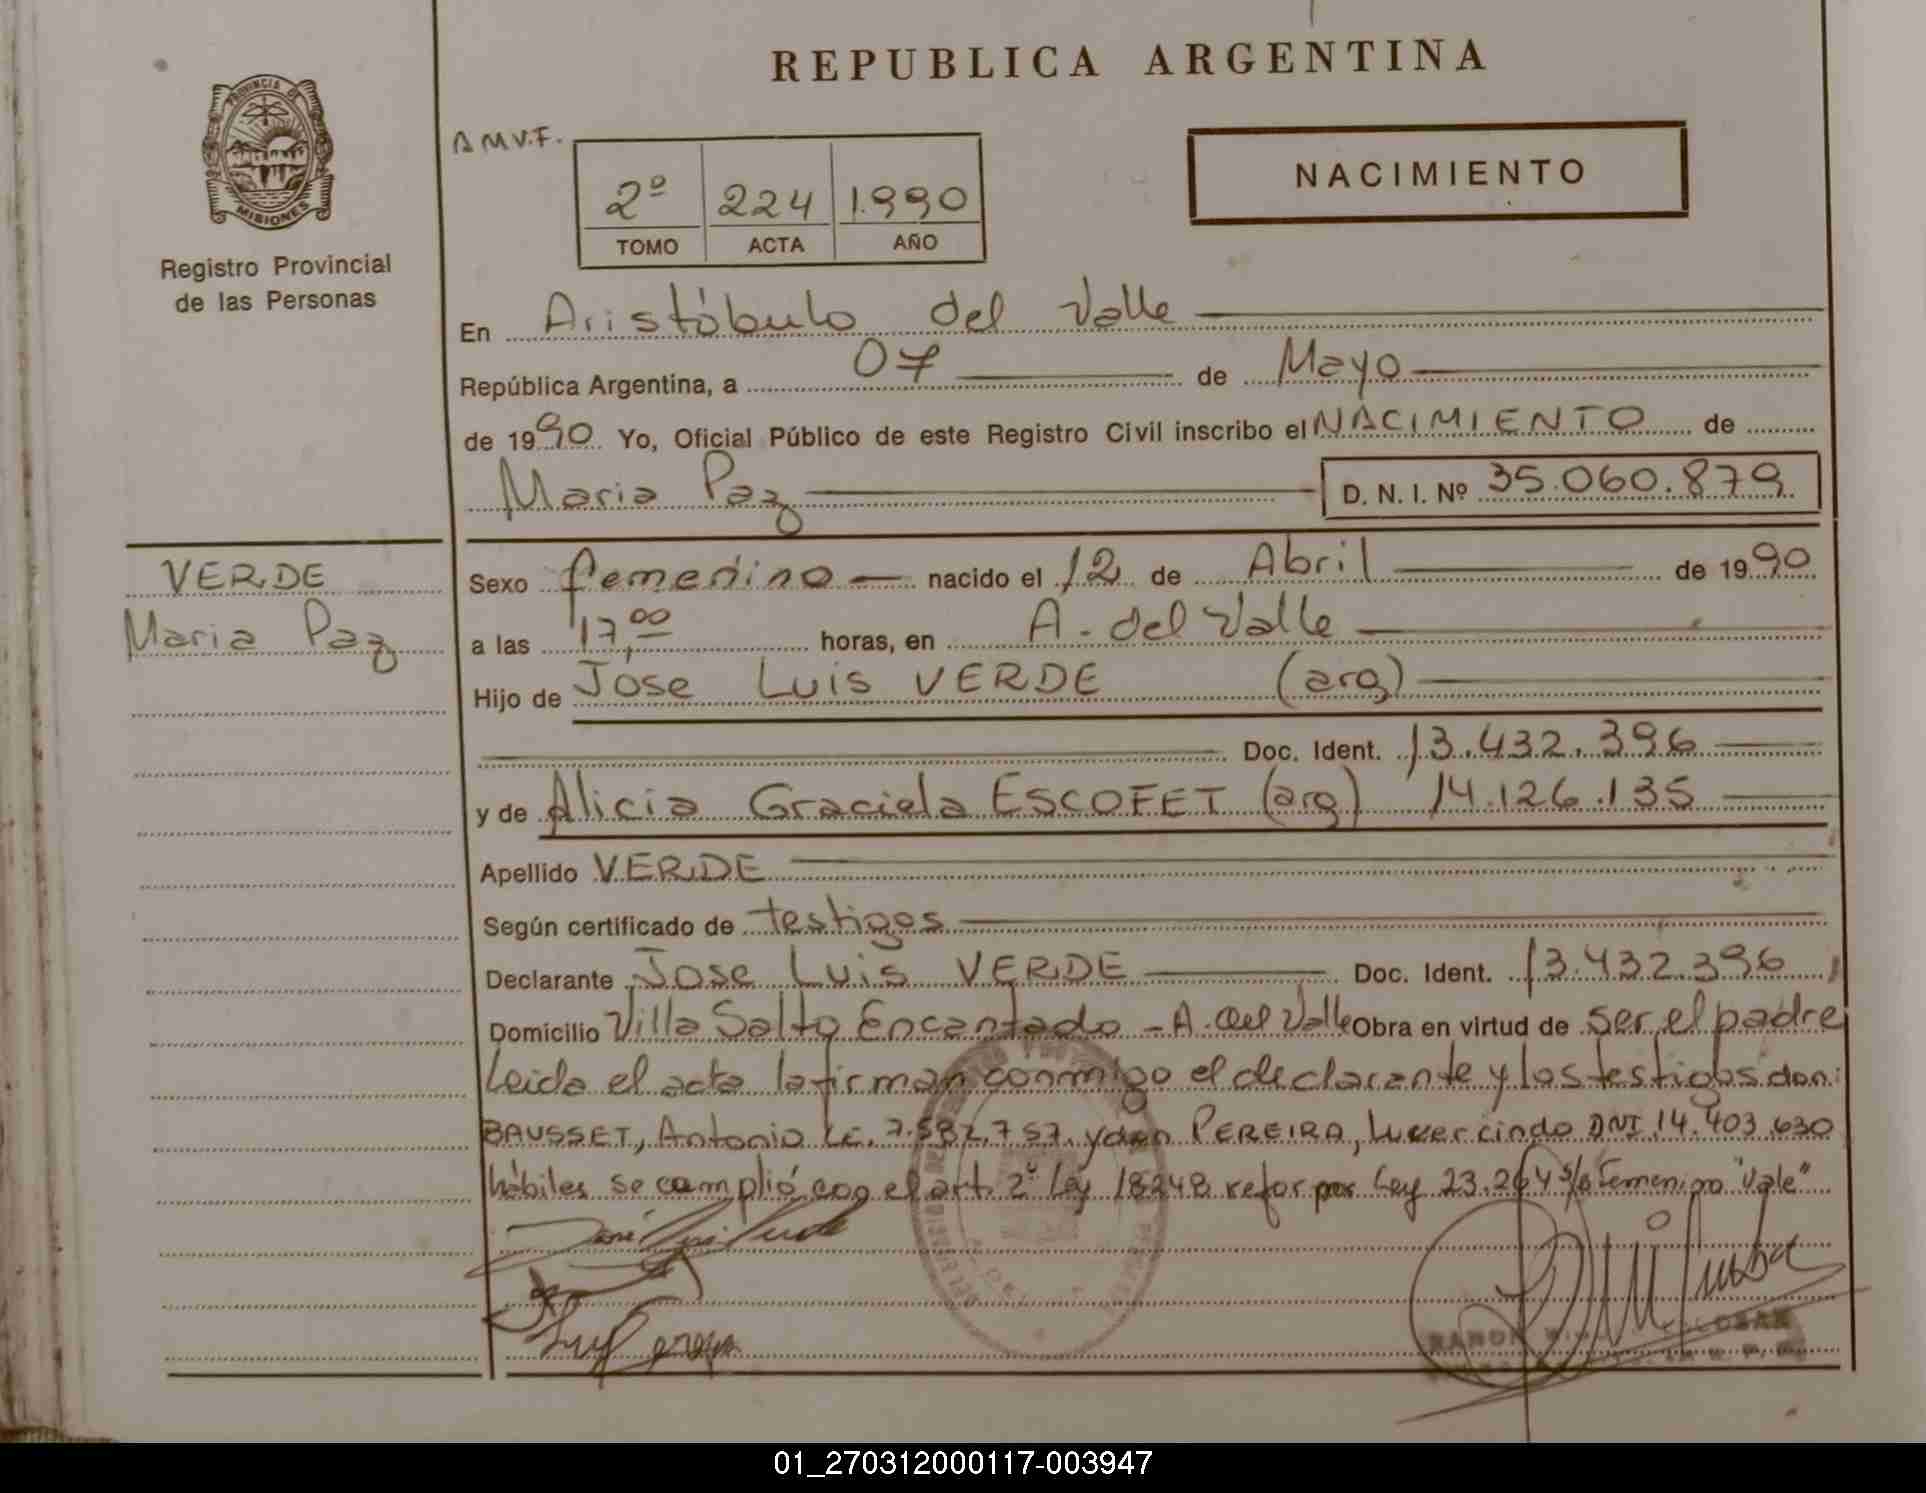 REPUBLICA ARGENTINA
PROVINCIA DE
MISIONES
Registro Provincial
de las Personas
A M.V.F.
2º 224 1.990
TOMO ACTA AÑO
NACIMIENTO
En Aristóbulo del Valle
República Argentina, a 07 de Mayo
de 1990 Yo, Oficial Público de este Registro Civil inscribo el NACIMIENTO de
Maria Paz D. N. I. Nº 35.060.879
VERDE
Maria Paz
Sexo femenino nacido el 12 de Abril de 1990
a las 17,00 horas, en A. del Valle
Hijo de Jose Luis VERDE (arg)
Doc. Ident. 13.432.396
y de Alicia Graciela ESCOFET (arg) 14.126.135
Apellido VERDE
Según certificado de testigos
Declarante Jose Luis VERDE Doc. Ident. 13.432.396
Domicilio Villa Salto Encantado - A. del Valle Obra en virtud de ser el padre
Leida el acta la firman conmigo el declarante y los testigos don:
BAUSSET, Antonio L.E. 7.582.757 y don PEREIRA, Luvercindo DNI 14.403.630
hábiles se complió con el art. 2º Ley 18248 refor por Ley 23.264 s/b Femenino "Vale"
José Luis Verde
RAMON ESCOBAR
01_270312000117-003947